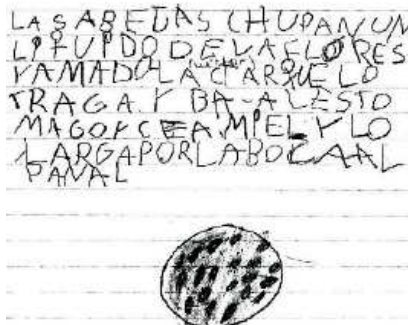 LAS ABEJAS CHUPAN UN
LIFUIDO DE LAS FLORES
YAMADO LA QUE LO
TRAGA Y BA-A LESTO
MAGO Y CEA MIEL Y LO
LARGA POR LA BOCA AL
PANAL